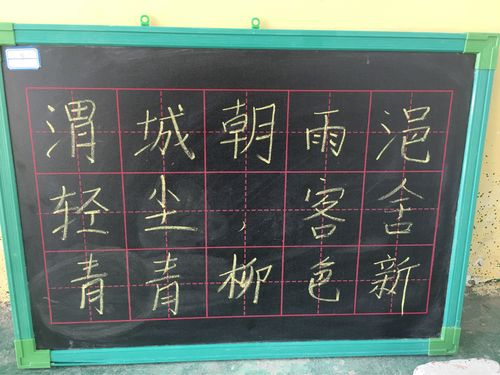 渭城朝雨浥
轻尘,客舍
青青柳色新